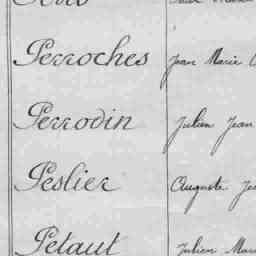 Perroches Jean Marie
Perrodin Julien Jean
Peslier Auguste
Petaut Julien